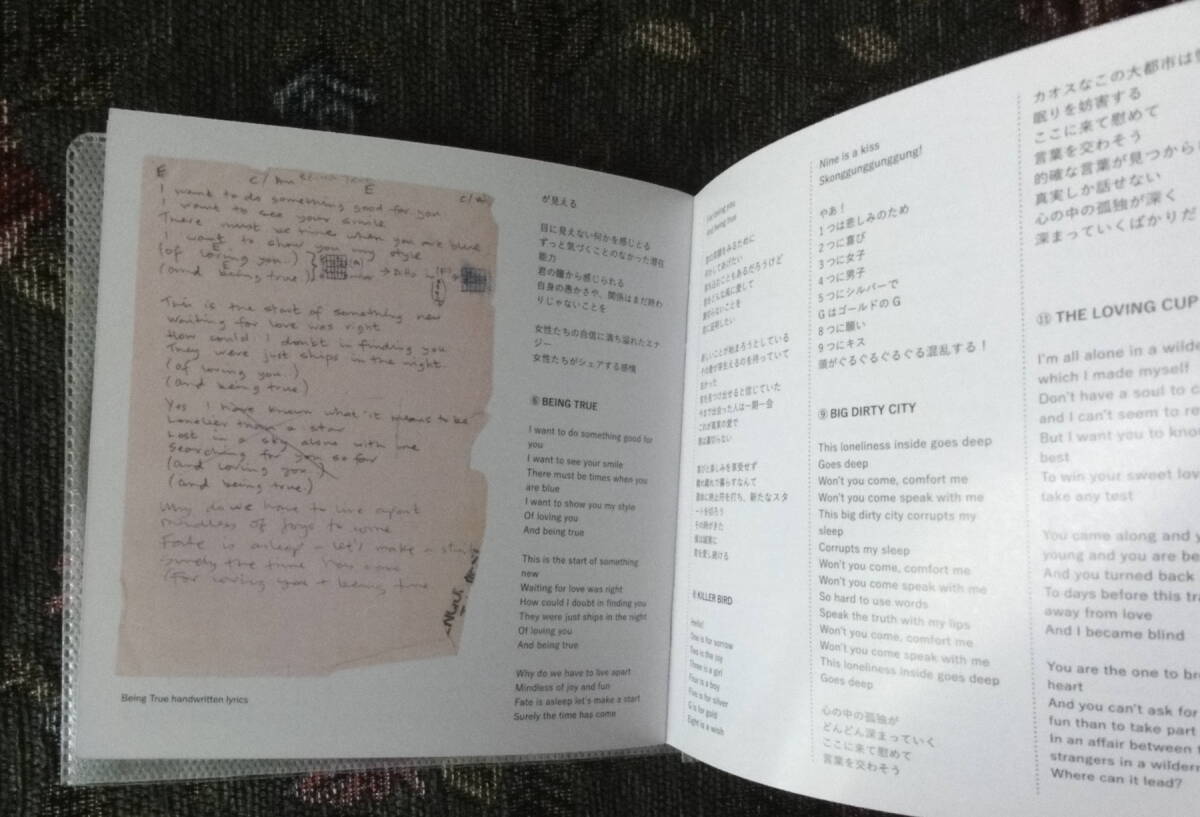 E C/Am Being True E C/Am
I want to do something good for you
I want to see your smile
There must be times when you are blue
I want to show you my style
(of loving you.)
(and being true.)
This is the start of something new
Waiting for love was right
How could I doubt in finding you
They were just ships in the night.
(of loving you.)
(and being true)
Yes I have known what it means to be
Lonelier than a star
Lost in a sky alone with me
Searching for you so far
(and loving you.)
(and being true.)
Why do we have to live apart
Mindless of joys to come
Fate is asleep - let's make a start
Surely the time has come
(For loving you + being true
Being True handwritten lyrics
が見える
目に見えない何かを感じとる
ずっと気づくことのなかった潜在
能力
君の瞳から感じられる
自身の愚かさや、関係はまだ終わ
りじゃないことを
女性たちの自信に満ち溢れたエナ
ジー
女性たちがシェアする感情
⑥ BEING TRUE
I want to do something good for
you
I want to see your smile
There must be times when you
are blue
I want to show you my style
Of loving you
And being true
This is the start of something
new
Waiting for love was right
How could I doubt in finding you
They were just ships in the night
Of loving you
And being true
Why do we have to live apart
Mindless of joy and fun
Fate is asleep let's make a start
Surely the time has come
For loving you
And being true
君の笑顔をみるために
何かしてあげたい
落ち込むこともあるだろうけど
君をどんな風に愛して
裏切らないことを
君に証明したい
新しいことが始まろうとしている
その愛が芽生えるのを待っていて
良かった
君を見つけ出せると信じていた
今まで出会った人は一期一会
これが真実の愛で
君は裏切らない
喜びと楽しみを享受せず
運命に終止符を打ち、新たなスタ
ートを切ろう
その時がきた
僕は誠実に
君を愛し続ける
KILLER BIRD
Hello!
One is for sorrow
Two is the joy
Three is a girl
Four is a boy
Five is for silver
G is for gold
Eight is a wish
Nine is a kiss
Skonggunggunggung!
やあ！
1つは悲しみのため
2つに喜び
3つに女子
4つに男子
5つにシルバーで
GはゴールドのG
8つに願い
9つにキス
頭がぐるぐるぐるぐる混乱する！
⑨ BIG DIRTY CITY
This loneliness inside goes deep
Goes deep
Won't you come, comfort me
Won't you come speak with me
This big dirty city corrupts my
sleep
Corrupts my sleep
Won't you come, comfort me
Won't you come speak with me
So hard to use words
Speak the truth with my lips
Won't you come, comfort me
Won't you come speak with me
This loneliness inside goes deep
Goes deep
心の中の孤独が
どんどん深まっていく
ここに来て慰めて
言葉を交わそう
カオスなこの大都市は
眠りを妨害する
ここに来て慰めて
言葉を交わそう
的確な言葉が見つから
真実しか話せない
心の中の孤独が深く
深まっていくばかりだ
⑪ THE LOVING CUP
I'm all alone in a wilde
which I made myself
Don't have a soul to
and I can't seem to re
But I want you to know
best
To win your sweet lov
take any test
You came along and y
young and you are be
And you turned back
To days before this tra
away from love
And I became blind
You are the one to br
heart
And you can't ask for
fun than to take part
In an affair between
strangers in a wildern
Where can it lead?